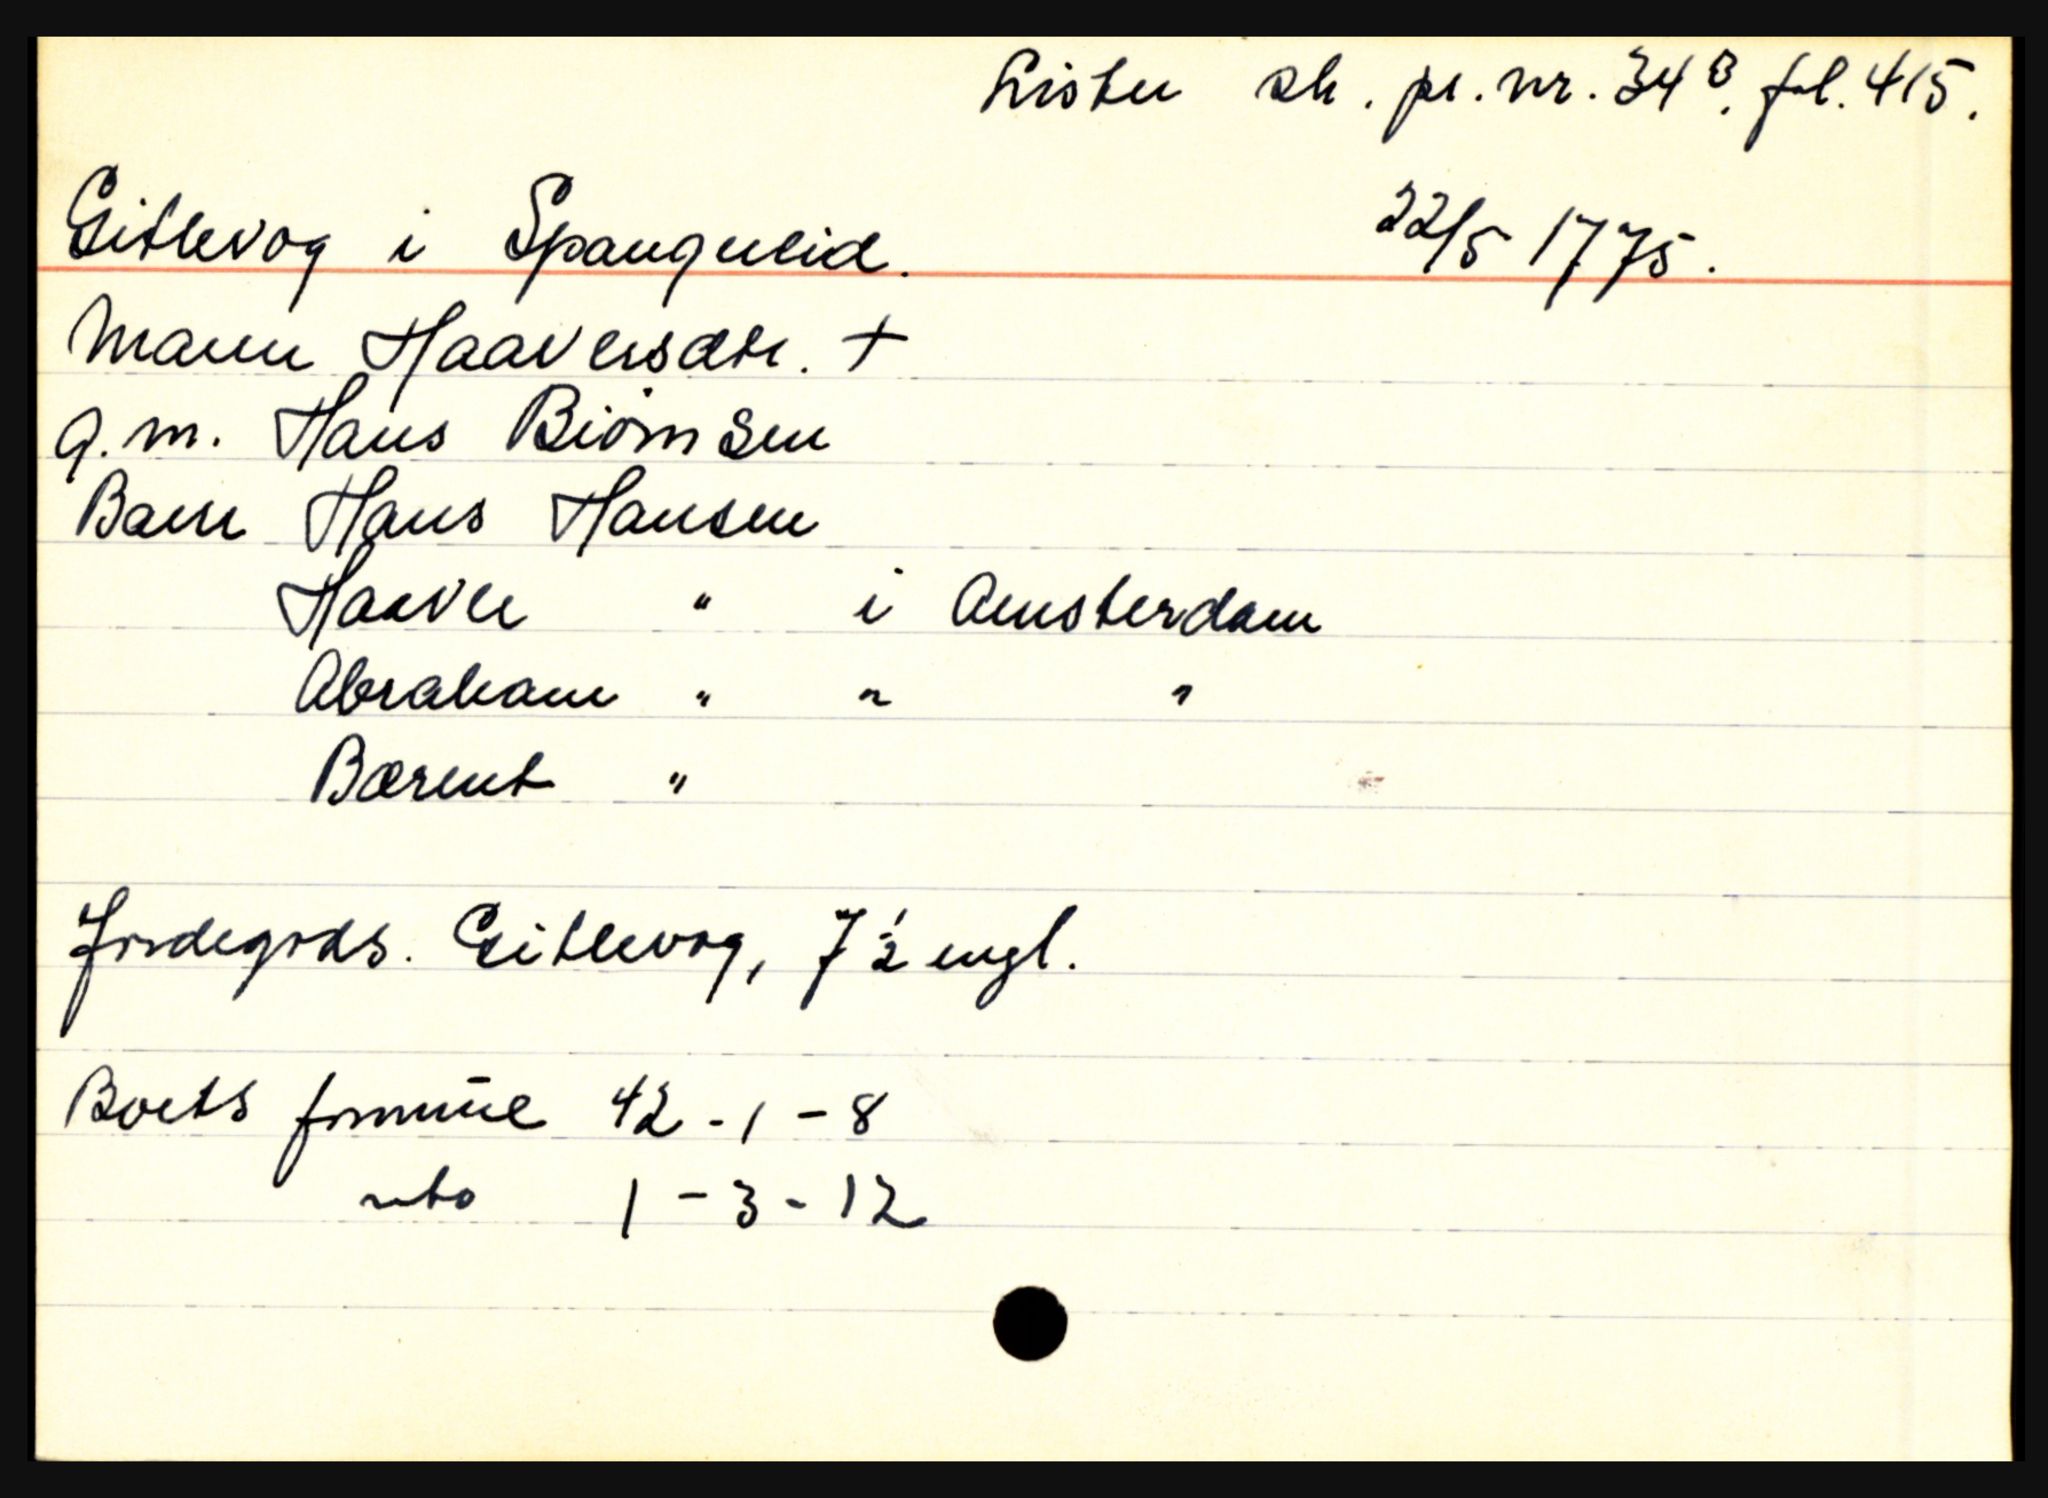 Lister sk. pr. nr. 34 B. fol. 415.
Gitlevog i Spangereid. 22/5 1775.
Marin Haaversdtr. +
g.m. Hans Biørnsen
Barn Hans Hansen
Haaver " i Amsterdam
Abraham " " "
Bærent "
Jordegods. Gitlevog, 7 1/2 engl.
Boets formue 42 - 1 - 8
nto 1 - 3 - 12